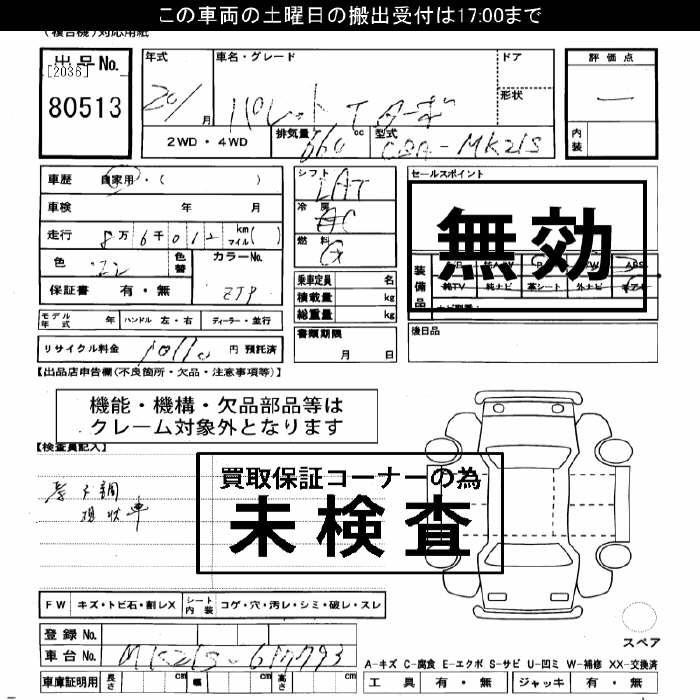 この車両の土曜日の搬出受付は17:00まで
(複合機)対応用紙
出品No. 年式 車名・グレード ドア 評価点
[2036]
80513 20/月 パレット T ターボ 形状 一
2WD・4WD 排気量 660 cc 型式 CBA-MK21S 内装
車歴 自家用・( ) シフト LAT セールスポイント
車検 年 月 冷房 AC 無効
走行 8万6千012 km マイル( ) 燃料 G
色 色替 カラーNo. 装備品
ABS
保証書 有・無 ZJP 乗車定員 名 純TV 純ナビ 革シート 外ナビ
積載量 kg
総重量 kg
モデル年式 年 ハンドル 左・右 ディーラー・並行 書類期限 後日品
リサイクル料金 円 預託済 月 日
【出品店申告欄(不良箇所・欠品・注意事項等)】
機能・機構・欠品部品等は
クレーム対象外となります
【検査員記入】
買取保証コーナーの為
未検査
不調
現状車
FW キズ・トビ石・割レX シート内装 コゲ・穴・汚レ・シミ・破レ・スレ
登録No. スペア
車台No. MK21S-617793 A-キズ C-腐食 E-エクボ S-サビ U-凹ミ W-補修 XX-交換済
車庫証明用 長さ cm 幅 cm 高さ cm 工具 有・無 ジャッキ 有・無